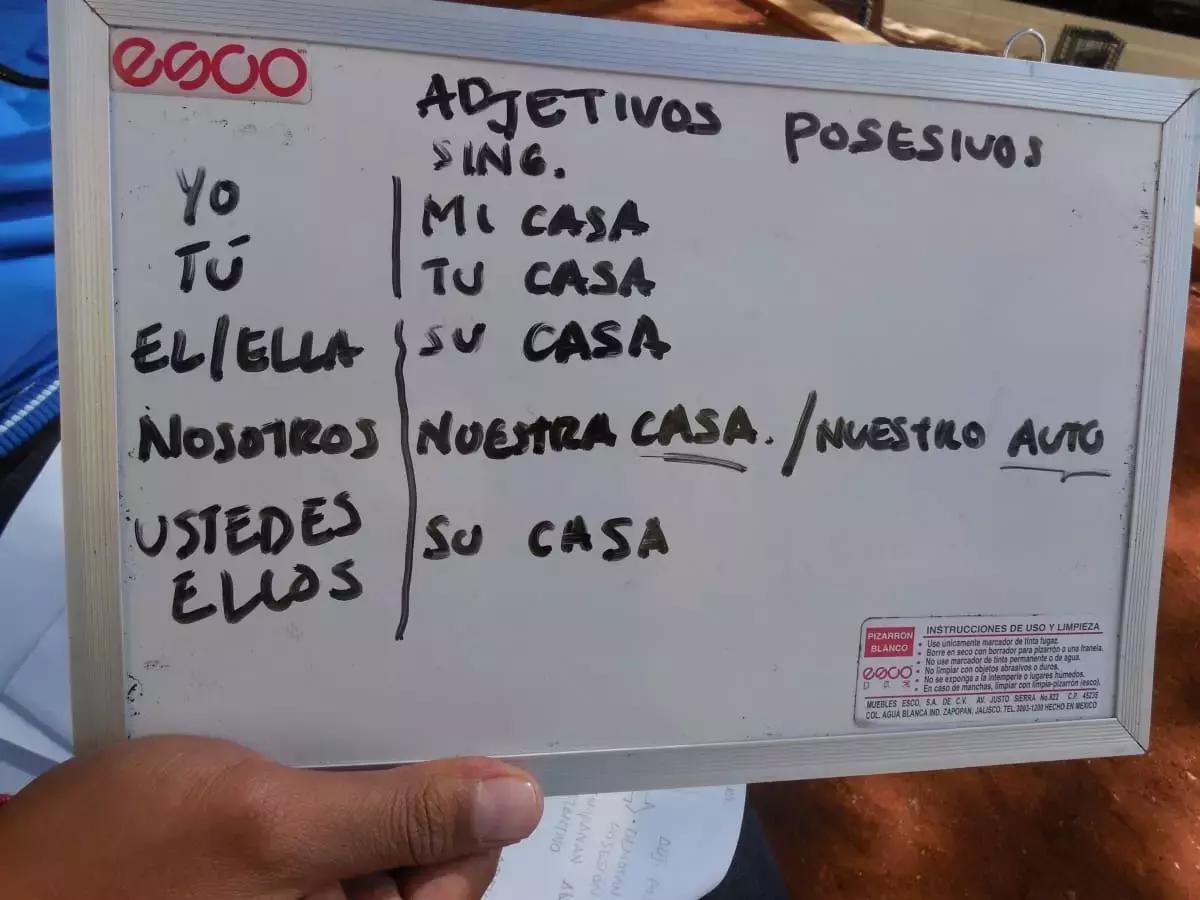 esco
ADJETIVOS POSESIVOS
SING.
YO MI CASA
TÚ TU CASA
EL/ELLA SU CASA
NOSOTROS NUESTRA CASA. / NUESTRO AUTO
USTEDES SU CASA
ELLOS
PIZARRON BLANCO
esco
INSTRUCCIONES DE USO Y LIMPIEZA
• Use únicamente marcador de tinta fugaz.
• Borre en seco con borrador para pizarrón o una franela.
• No use marcador de tinta permanente o de agua.
• No limpiar con objetos abrasivos o duros.
• No se exponga a la intemperie o lugares húmedos.
• En caso de manchas, limpiar con limpia-pizarrón (esco).
MUEBLES ESCO, S.A. DE C.V. AV. JUSTO SIERRA No.822 C.P. 45235
COL. AGUA BLANCA IND. ZAPOPAN, JALISCO. TEL. 3003-1200 HECHO EN MEXICO